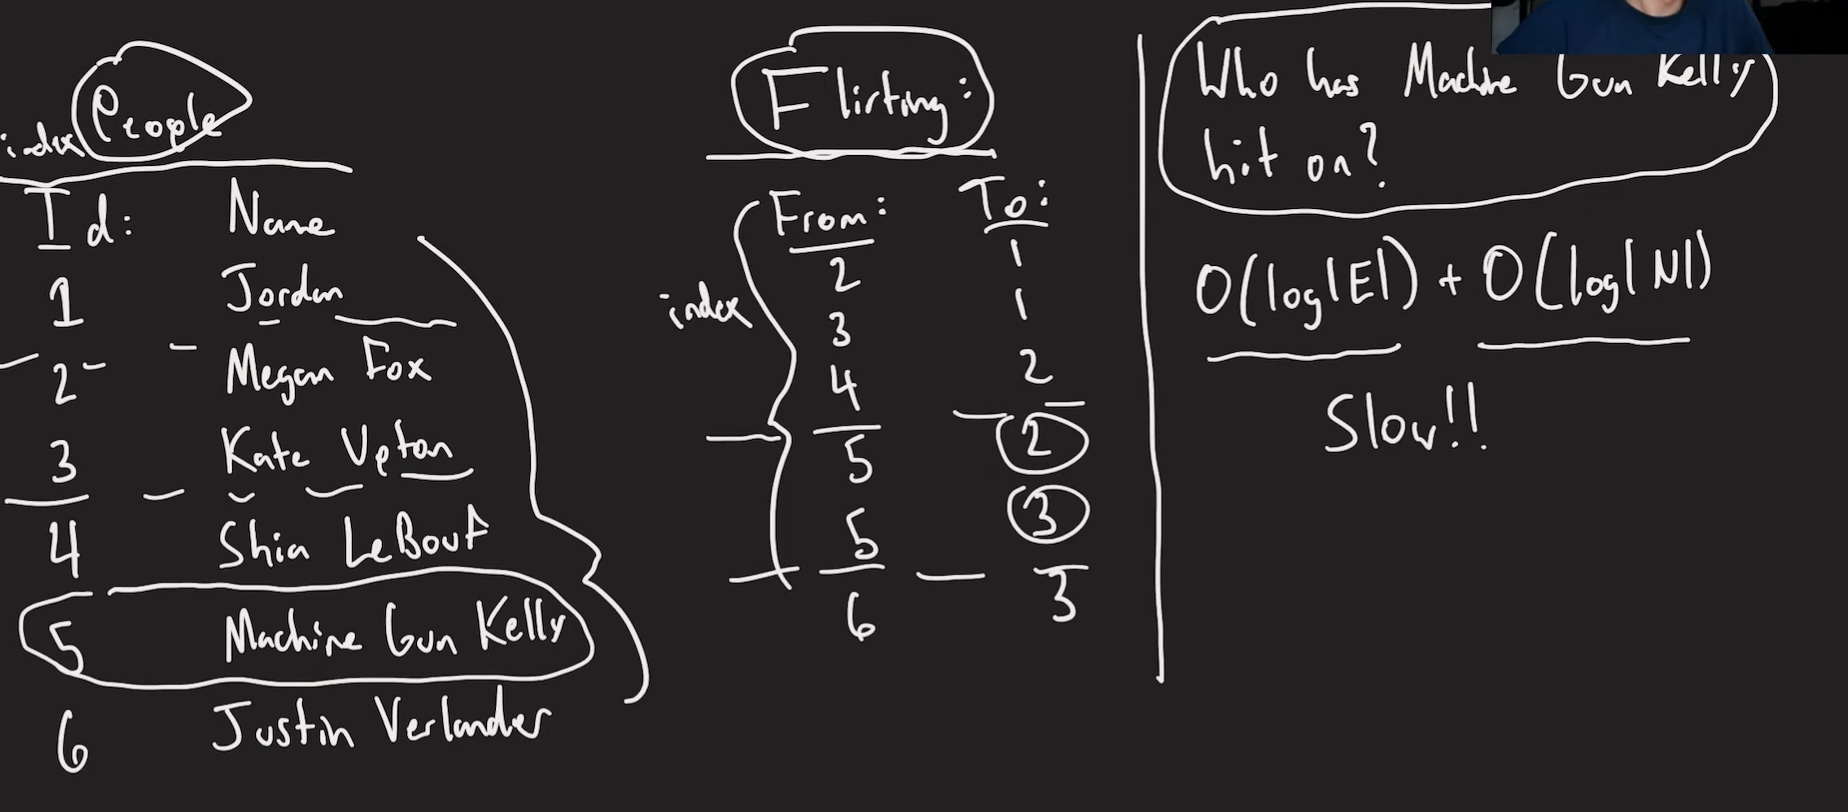 index People
Id: Name
1 Jordan
2 Megan Fox
3 Kate Upton
4 Shia LeBouf
5 Machine Gun Kelly
6 Justin Verlander
Flirting:
index
From: To:
2 1
3 1
4 2
5 2
5 3
6 3
Who has Machine Gun Kelly
hit on?
O(log|E|) + O(log|N|)
Slow!!